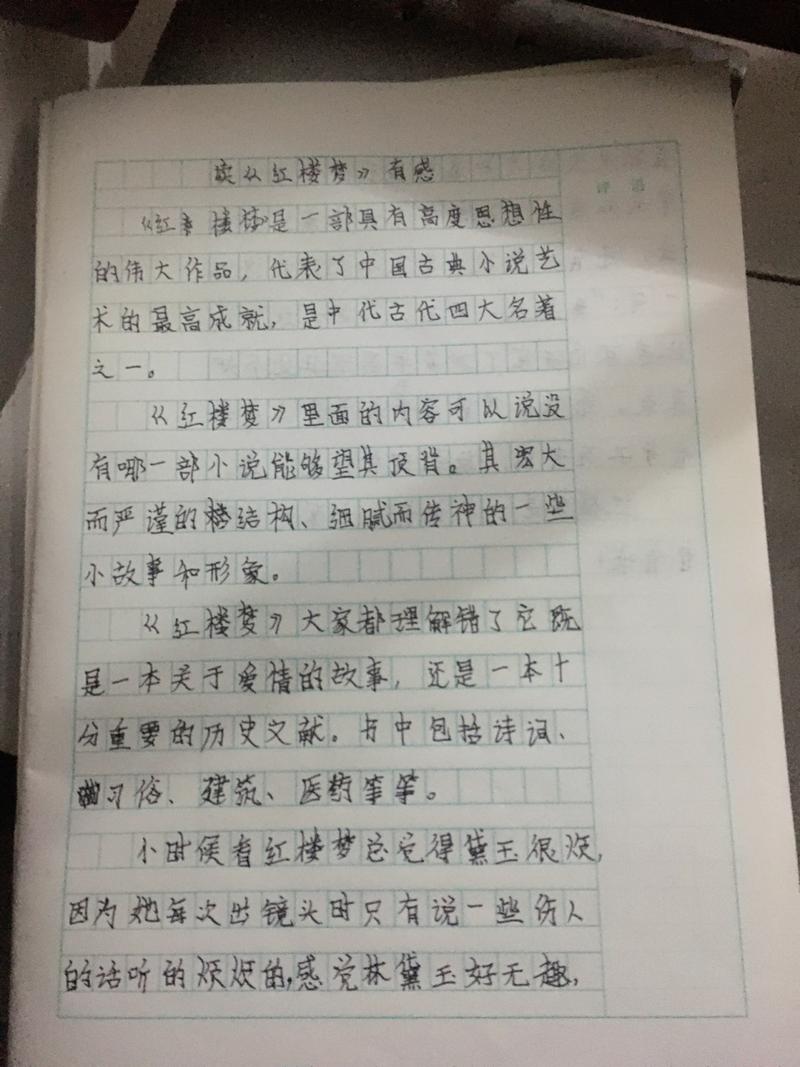 读《红楼梦》有感
《红楼梦》是一部具有高度思想性
的伟大作品，代表了中国古典小说艺
术的最高成就，是中代古代四大名著
之一。
《红楼梦》里面的内容可以说没
有哪一部小说能够望其顶背。其宏大
而严谨的结构、细腻而传神的一些
小故事和形象。
《红楼梦》大家都理解错了它既
是一本关于爱情的故事，还是一本十
分重要的历史文献。书中包括诗词、
习俗、建筑、医药等等。
小时候看红楼梦总觉得黛玉很烦，
因为她每次出镜头时只有说一些伤人
的话听的烦烦的，感觉林黛玉好无趣，
评语